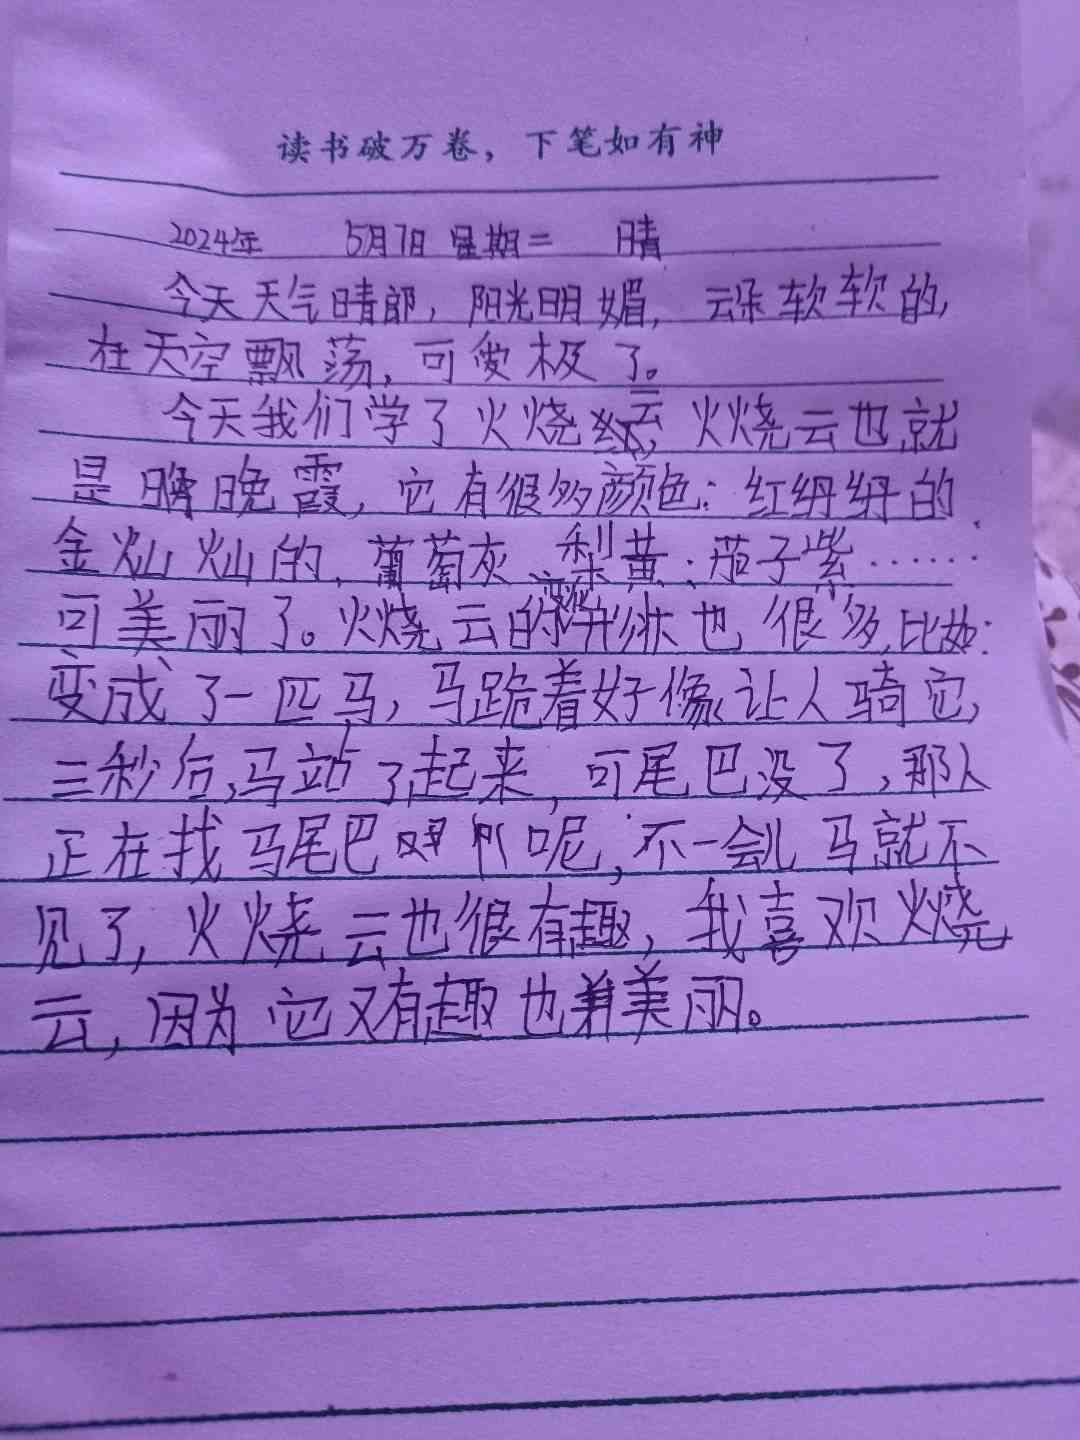 读书破万卷，下笔如有神
2024年 5月7日 星期二 晴
今天天气晴郎，阳光明媚，云朵软软的，
在天空飘荡，可爱极了。
今天我们学了火烧云，火烧云也就
是晚霞，它有很多颜色：红彤彤的
金灿灿的、葡萄灰、梨黄；茄子紫……
可美丽了。火烧云的变化也很多，比如：
变成了一匹马，马跪着好像让人骑它，
三秒后，马站了起来，可尾巴没了，那人
正在找马尾巴呢，不一会儿马就不
见了，火烧云也很有趣，我喜欢火烧
云，因为它又有趣也美丽。